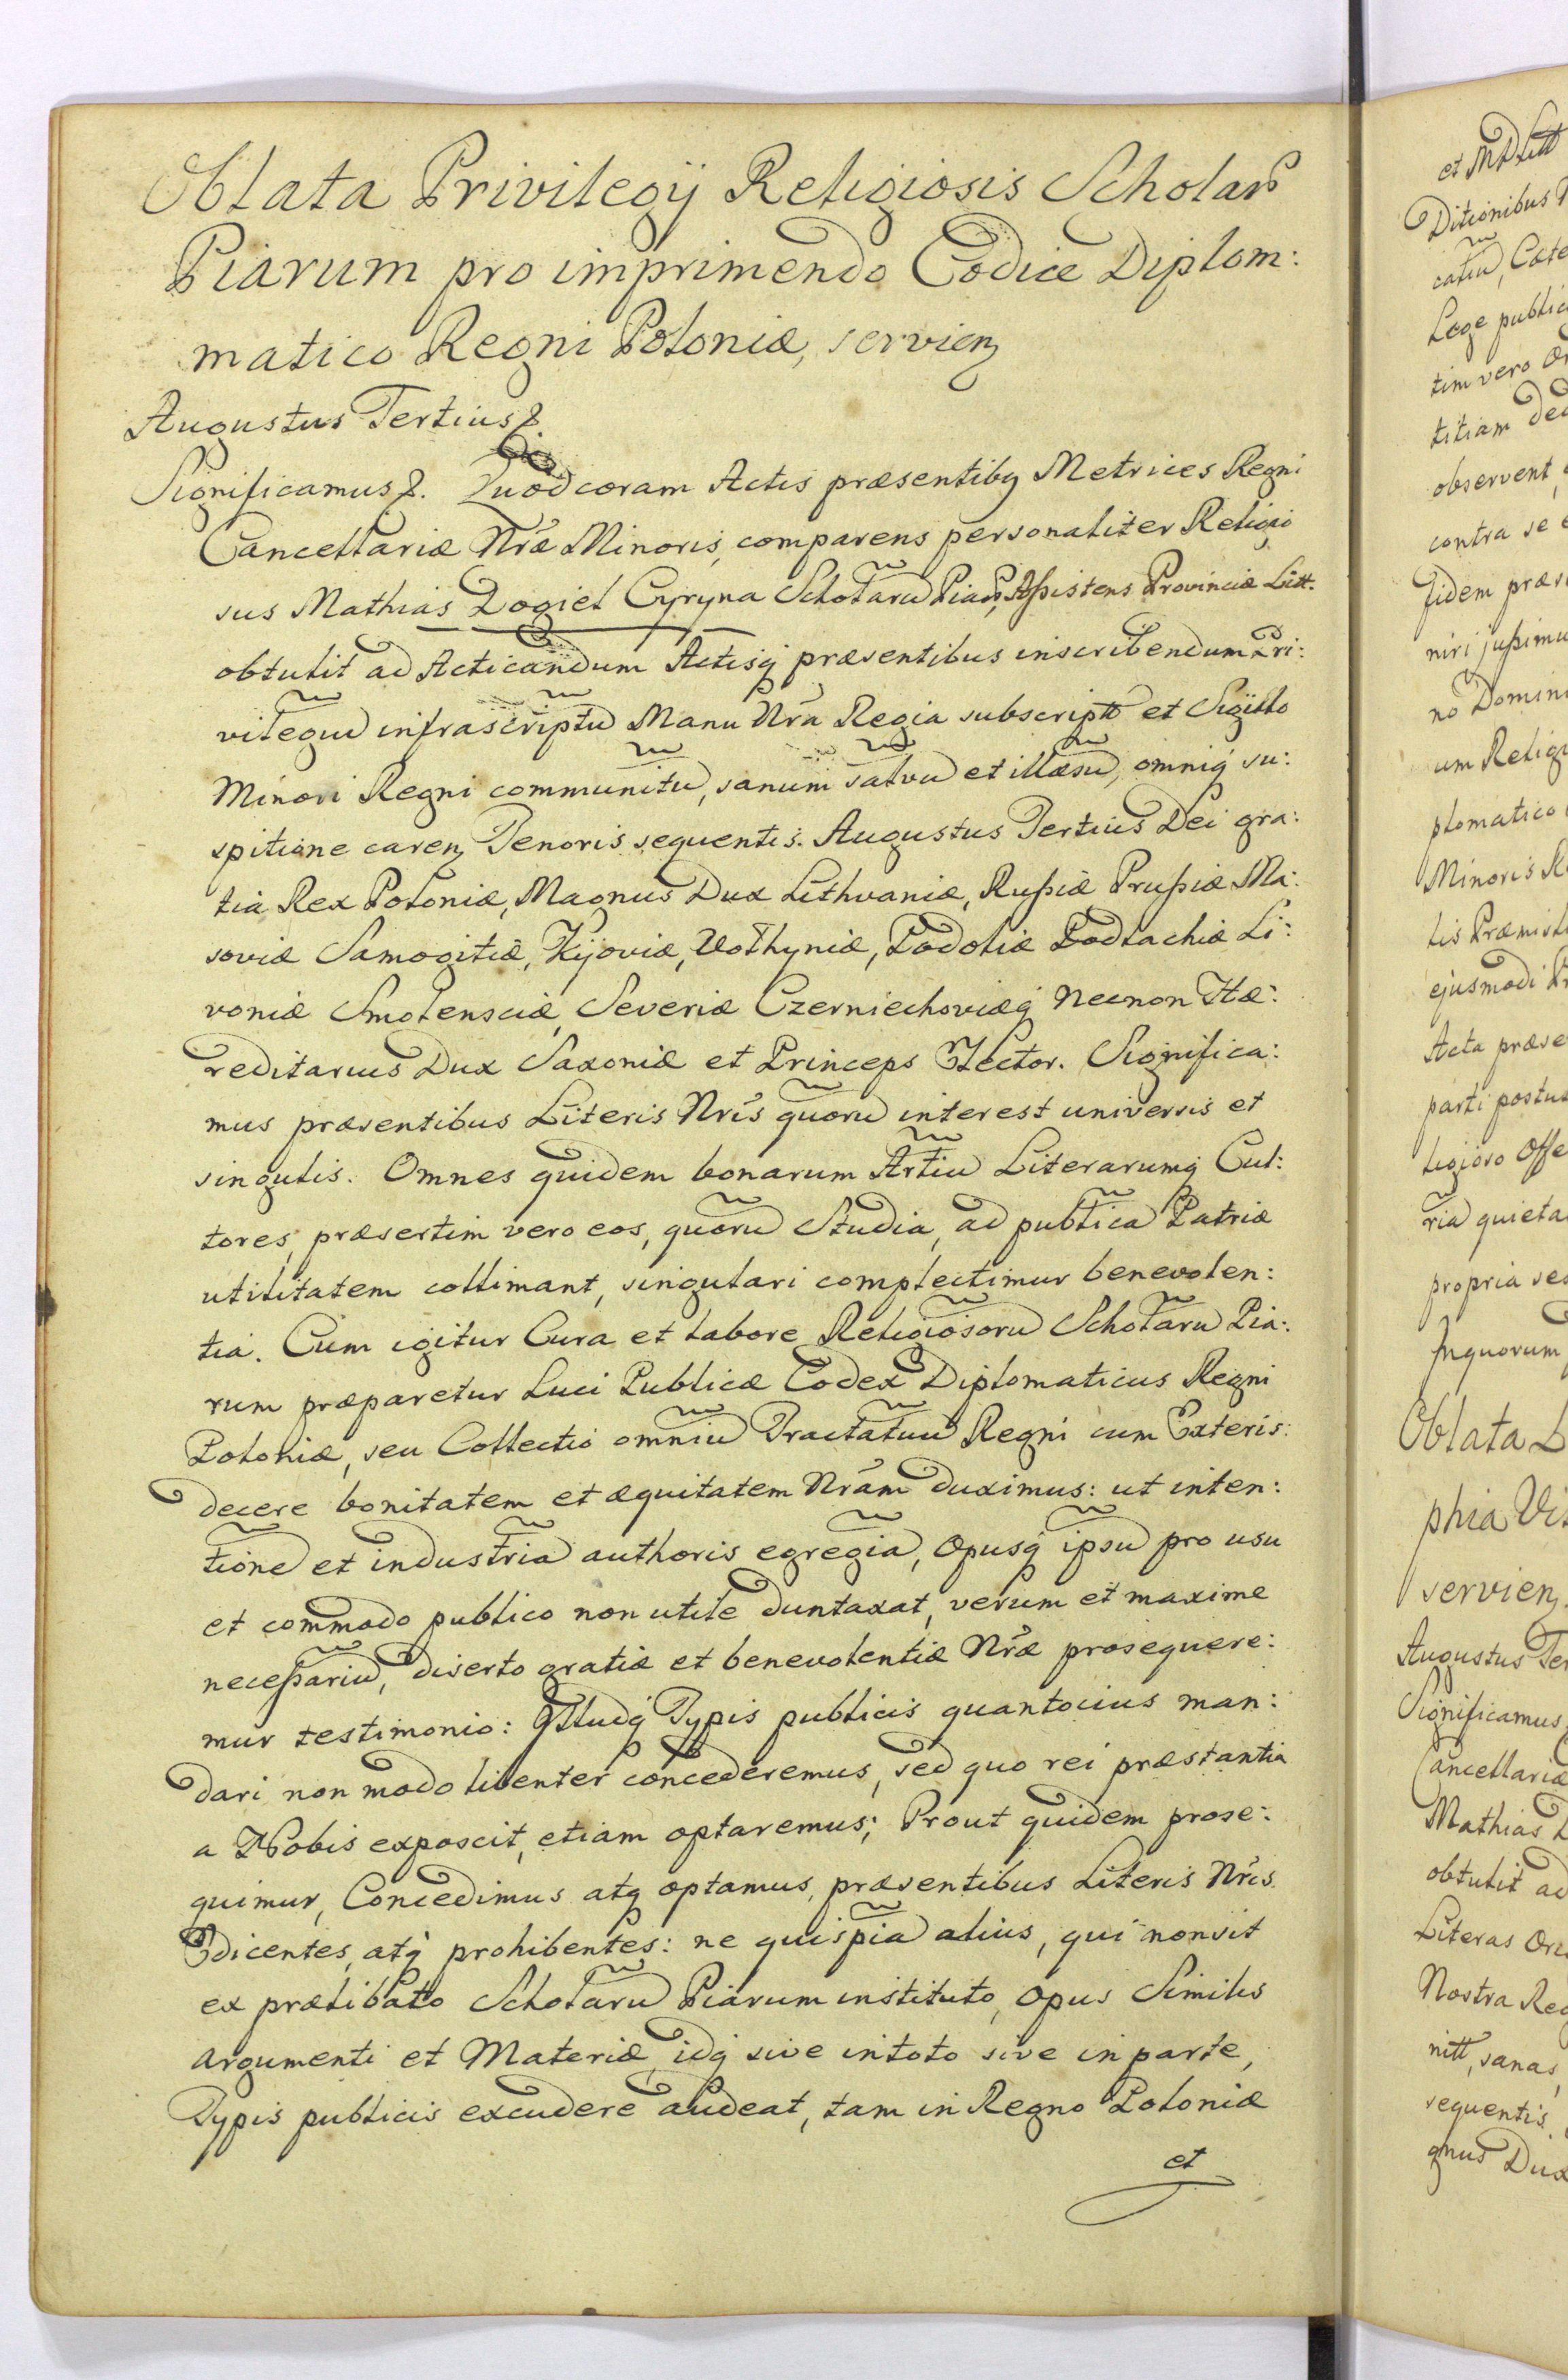 Oblata Privilegij Religiosis Scholar
Piarum pro imprimendo Codice Diplom:
matico Regni Poloniæ, servien
Augustus Tertius
Significamus. Quod coram Actis præsentibq Metrices Regni
Cancellariæ Nræ Minoris, comparens personaliter Religio
sus Mathias Dogiel Cyryna Scholarũ Piar, Aßistens Provinciæ Litt.
obtulit ad Acticandum Actisq præsentibus inscribendum Pri:
vilegiũ infrascriptũ Manu Nra Regia subscriptũ et Sigillo
Minori Regni communitũ, sanum salvũ et illæsũ, omniq su:
spitione caren Tenoris sequentis. Augustus Tertius Dei gra:
tia Rex Poloniæ, Magnus Dux Lithvaniæ, Rußiæ Prußiæ Ma:
soviæ Samogitiæ, Kijoviæ, Volhyniæ, Podoliæ Podlachiæ Li:
voniæ Smolensciæ, Severiæ Czerniechoviæq necnon Hæ:
reditarius Dux Saxoniæ et Princeps Elector. Significa:
mus præsentibus Literis Nris quorũ interest universis et
singulis. Omnes quidem bonarum Artiũ Literarumq Cul:
tores, præsertim vero eos, quorũ Studia, ad publicã Patriæ
utilitatem collimant, singulari complectimur benevolen:
tia. Cum igitur Cura et labore Religiosorũ Scholarũ Pia:
rum præparetur Luci Publicæ Codex Diplomaticus Regni
Poloniæ, seu Collectio omniũ Tractatuũ Regni cum Exteris:
decere bonitatem et æquitatem Nram duximus: ut inten:
tionẽ et industriã authoris egregiã, Opusq ipsũ pro usu
et commodo publico non utile duntaxat, verum et maxime
neceßariũ, diserto gratiæ et benevolentiæ Nræ prosequere:
mur testimonio: Illudq Typis publicis quantocius man:
dari non modo libenter concederemus, sed quo rei præstantia
a Nobis exposcit, etiam optaremus; Prout quidem prose:
quimur, Concedimus atq optamus, præsentibus Literis Nris.
Edicentes, atq prohibentes: ne quispiã alius, qui non sit
ex prælibato Scholarũ Piarum instituto, opus Similis
argumenti et Materiæ, idq sive in toto sive in parte,
Typis publicis excudere audeat, tam in Regno Poloniæ
et
et MDLitt
Ditionibus
catiũ, Cate
Lege public
tim vero
titiam dec
observent
contra se
fidem præs
niri jußimu
no Domini
um Relig
plomatico
Minoris R
tis Præmist
ejusmodi
Acta præse
parti postu
ligioso Offe
riã quieta
propria
In quorum
Oblata
phia Vi
servien
Augustus Ter
Significamus
Cancellariæ
Mathias
obtulit ad
Literas Ori
Nostra Reg
nitt, sanas,
sequentis
gnus Dux